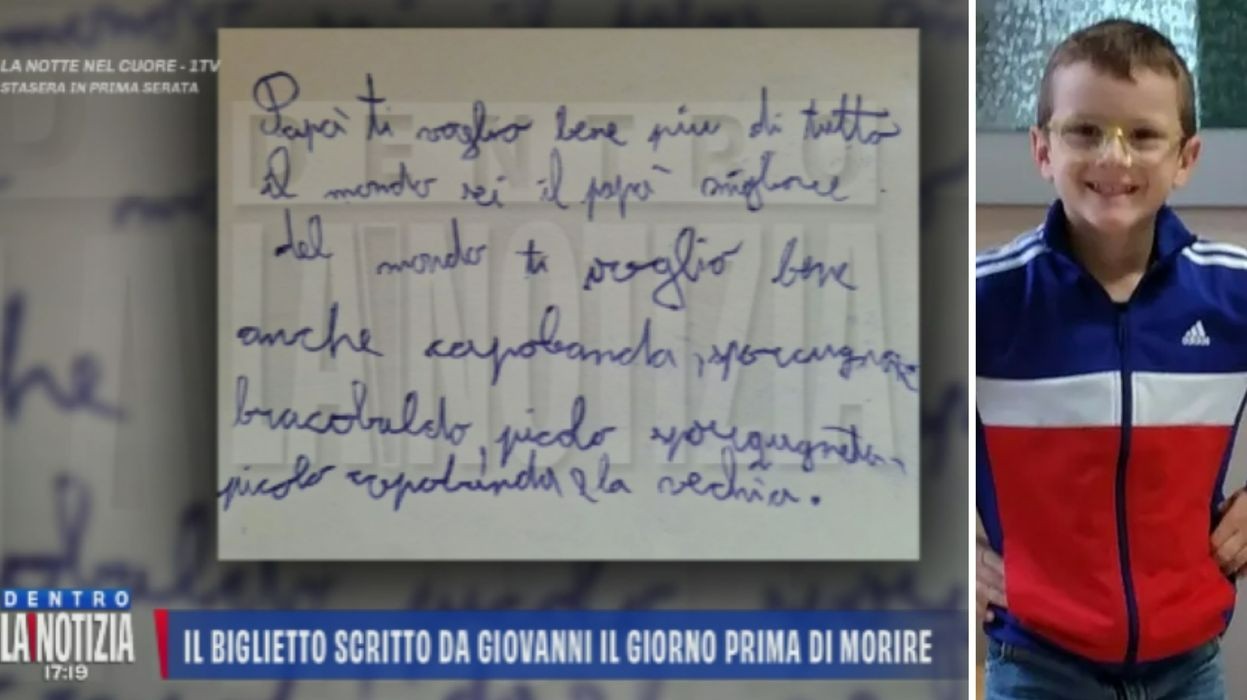 LA NOTTE NEL CUORE - 1TV
STASERA IN PRIMA SERATA
Papà ti voglio bene più di tutto
il mondo sei il papà migliore
del mondo ti voglio bene
anche capobanda,
bracobaldo, picolo
picolo capobanda e la vechia.
DENTRO
LA NOTIZIA
DENTRO
LA NOTIZIA
17:19
IL BIGLIETTO SCRITTO DA GIOVANNI IL GIORNO PRIMA DI MORIRE
adidas